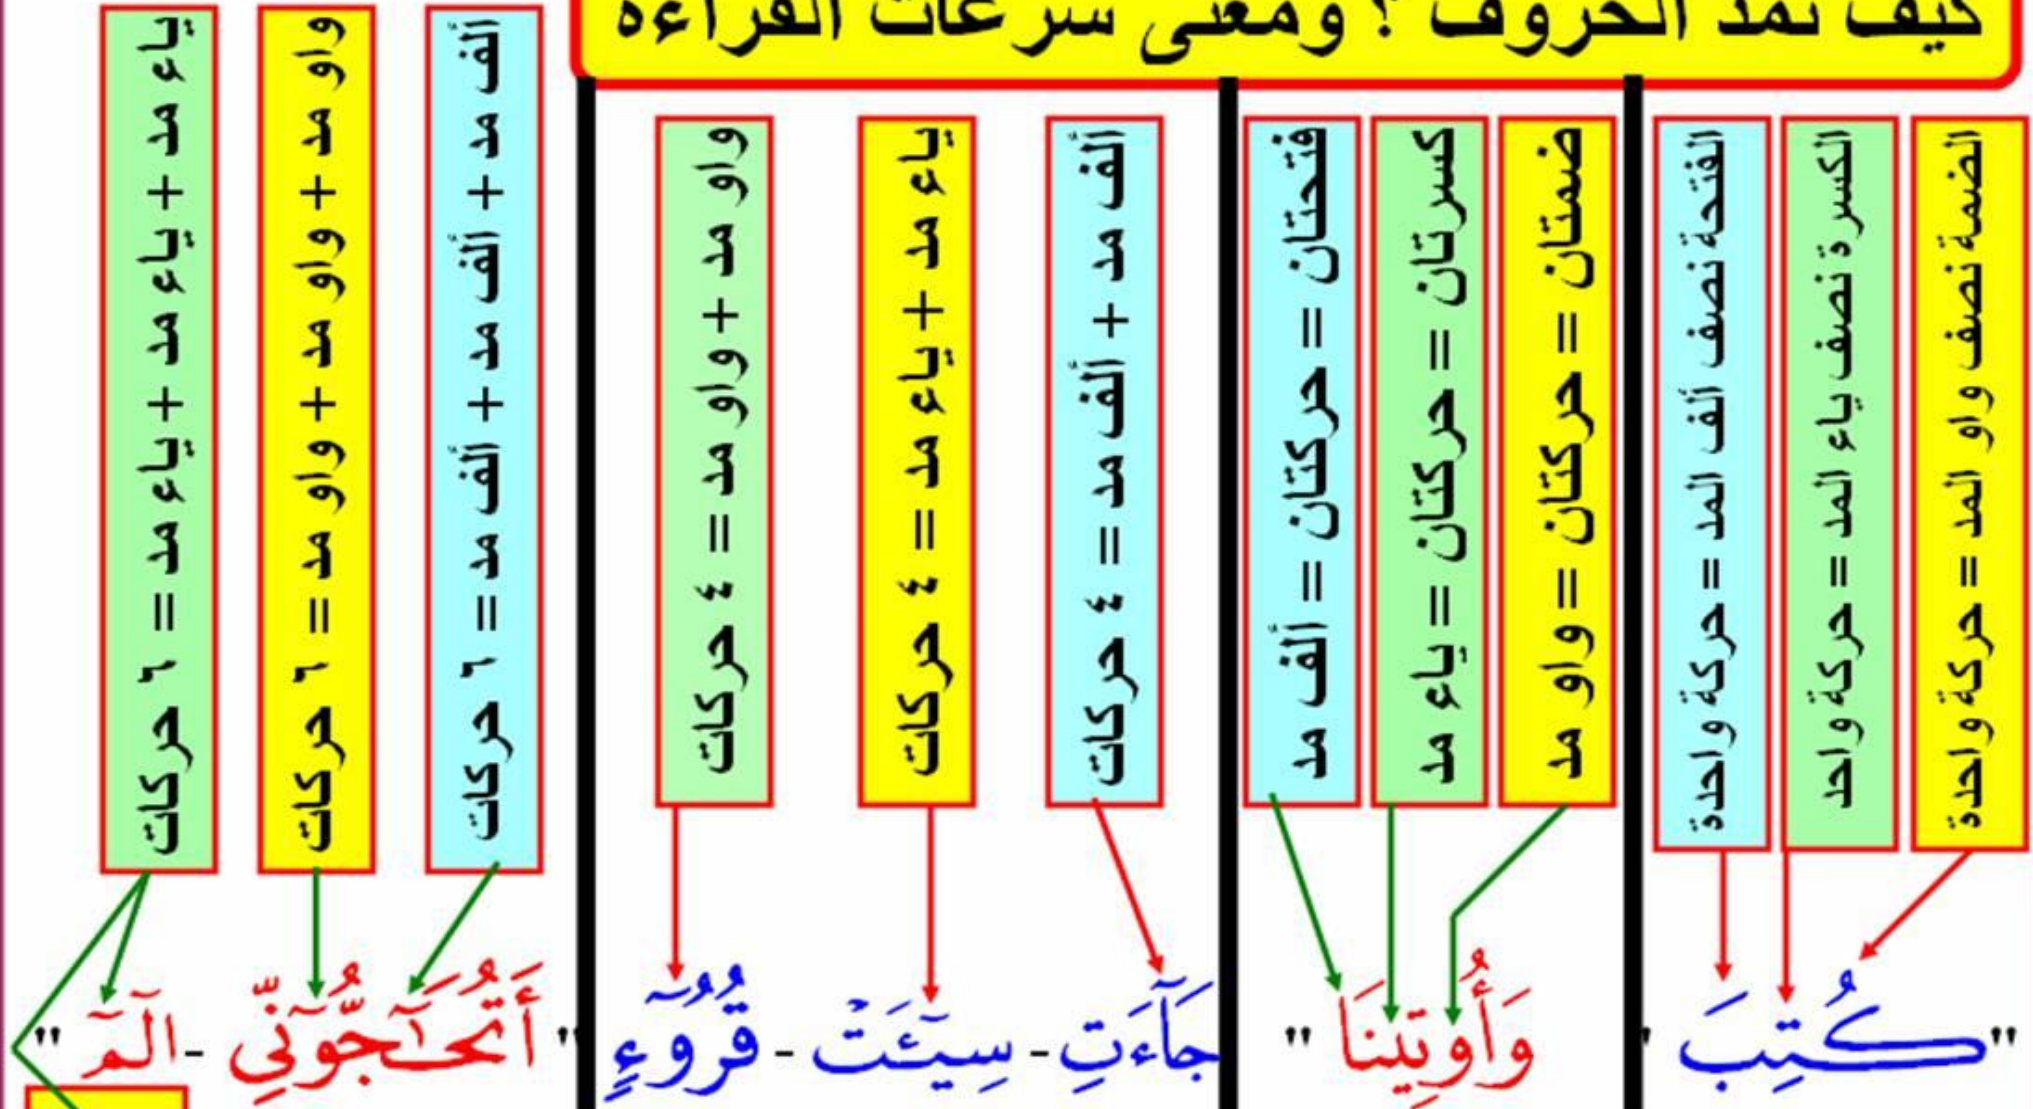 كيف نمد الحروف ؟ ومعنى سرعات القراءة
الضمة نصف واو المد = حركة واحدة
الكسرة نصف ياء المد = حركة واحد
الفتحة نصف ألف المد = حركة واحدة
ضمتان = حركتان = واو مد
كسرتان = حركتان = ياء مد
فتحتان = حركتان = ألف مد
ألف مد + ألف مد = ٤ حركات
ياء مد + ياء مد = ٤ حركات
واو مد + واو مد = ٤ حركات
ألف مد + ألف مد + ألف مد = ٦ حركات
واو مد + واو مد + واو مد = ٦ حركات
ياء مد + ياء مد + ياء مد = ٦ حركات
" كُتِبَ "
وَأُوتِينَا "
جَآءَتِ - سِيٓـَٔتْ - قُرُوٓءٍ
" أَتُحَـٰٓجُّوٓنِّي - الٓمٓ "